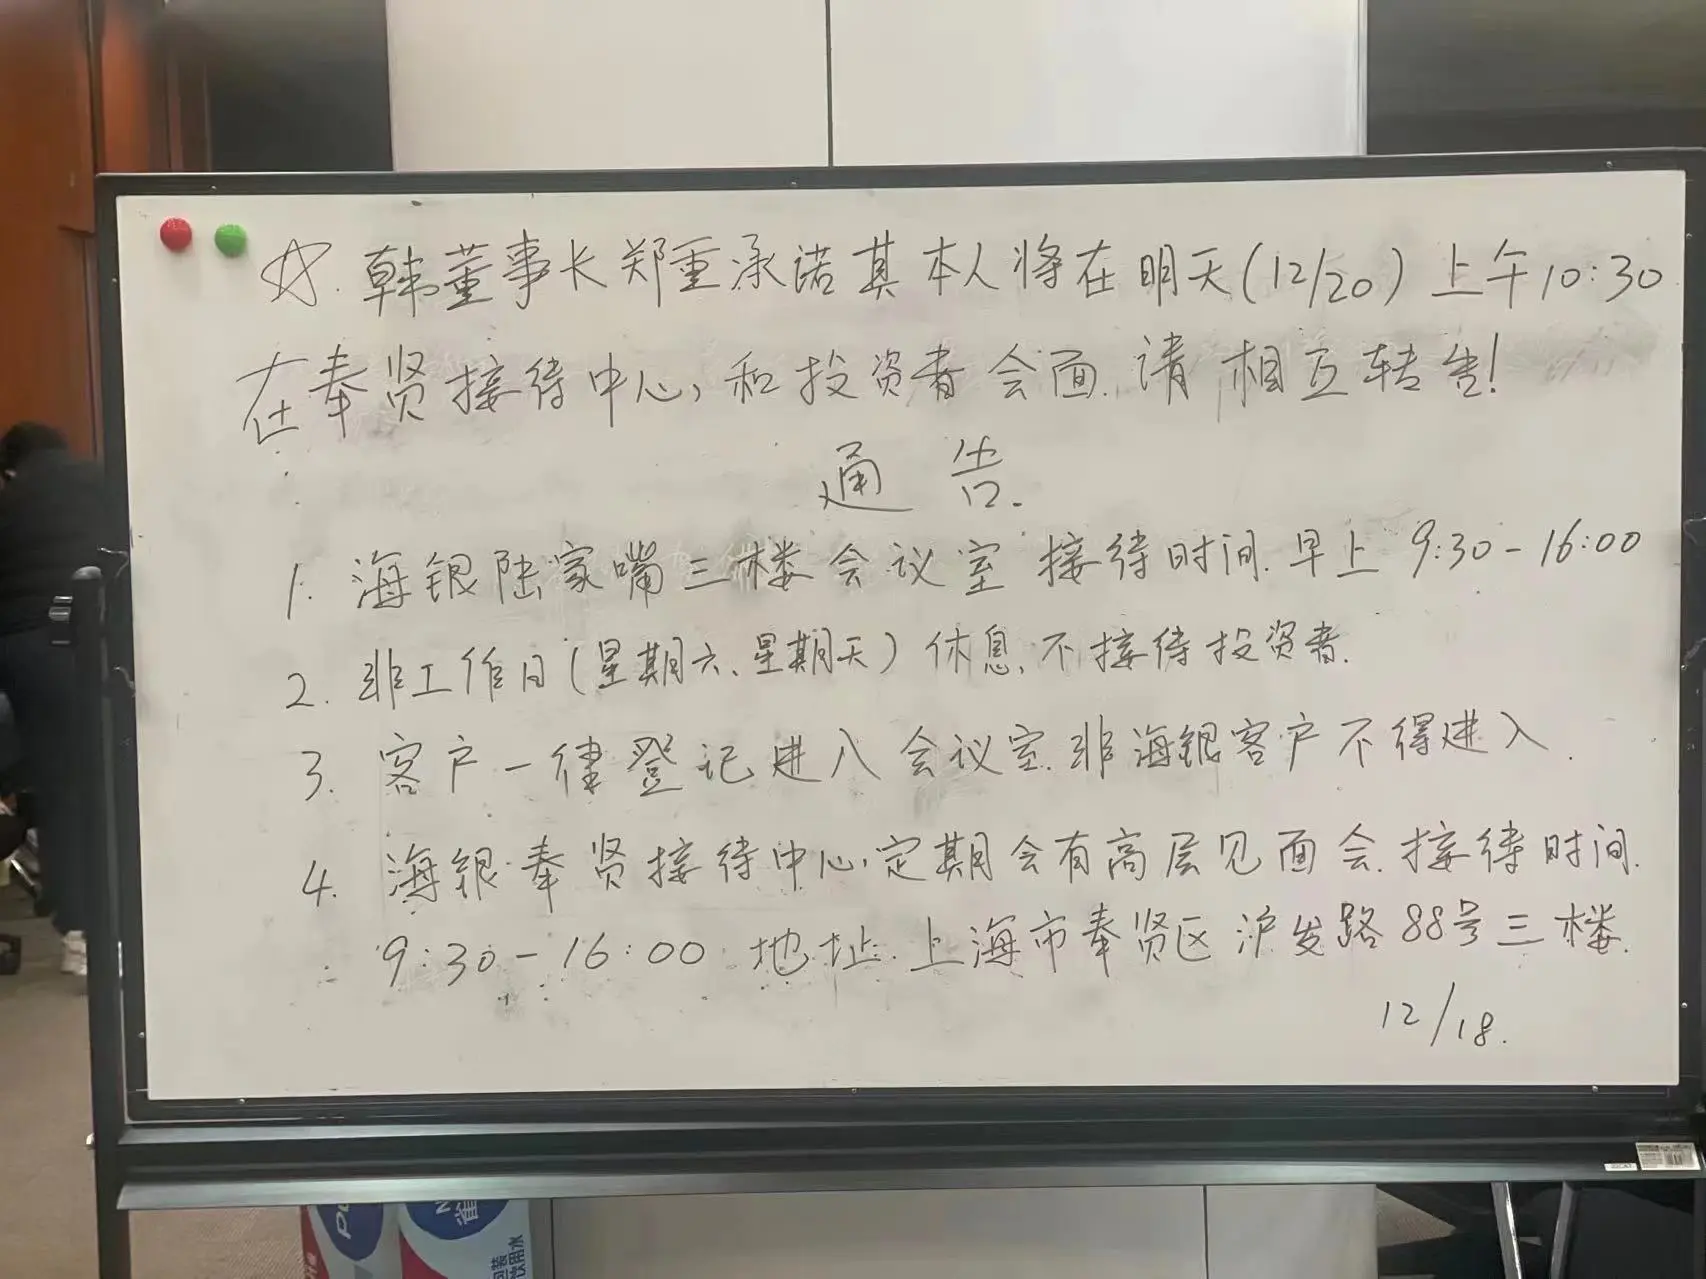 ☆.韩董事长郑重承诺其本人将在明天(12/20)上午10:30
在奉贤接待中心,和投资者会面.请相互转告!
通告.
1.海银陆家嘴三楼会议室接待时间.早上9:30-16:00
2.非工作日(星期六、星期天)休息.不接待投资者.
3.客户一律登记进入会议室.非海银客户不得进入.
4.海银奉贤接待中心.定期会有高层见面会.接待时间.
9:30-16:00.地址.上海市奉贤区沪发路88号三楼.
12/18.
包装
饮用水